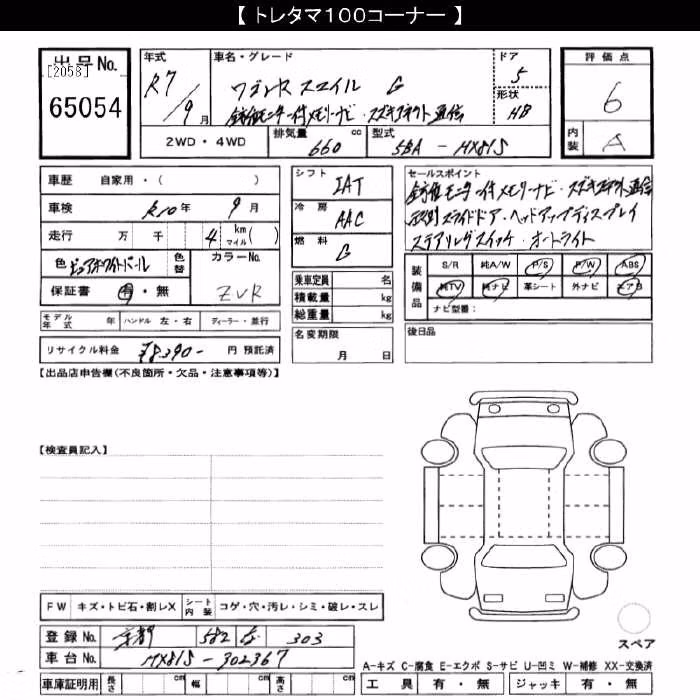 【 トレタマ100コーナー 】
出品No.
[2058]
65054
年式
R7/9月
車名・グレード
ワゴンR スマイル G
全方位モニター付メモリーナビ・スズキコネクト通信
ドア
5
形状
HB
評価点
6
内装
A
2WD・4WD
排気量
660 cc
型式
5BA-HX81S
車歴 自家用・( )
車検 R10年 9月
走行 万 千 4 km マイル( )
色 ピュアホワイトパール
色替
カラーNo.
ZVR
保証書 有・無
モデル年式 年
ハンドル 左・右
ディーラー・並行
リサイクル料金 ¥8390- 円 預託済
シフト
IAT
冷房
AAC
燃料
G
乗車定員 名
積載量 kg
総重量 kg
名変期限
月 日
セールスポイント
全方位モニター付メモリーナビ・スズキコネクト通信
両側スライドドア・ヘッドアップディスプレイ
ステアリングスイッチ・オートライト
装備品
S/R 純A/W P/S P/W ABS
純TV 純ナビ 革シート 外ナビ エアB
ナビ型番:
後日品
【出品店申告欄(不良箇所・欠品・注意事項等)】
【検査員記入】
FW キズ・トビ石・割レX
シート内装 コゲ・穴・汚レ・シミ・破レ・スレ
登録No. 京都 582 を 303
車台No. HX81S-302367
車庫証明用 長さ cm 幅 cm 高さ cm
スペア
A-キズ C-腐食 E-エクボ S-サビ U-凹ミ W-補修 XX-交換済
工具 有・無 ジャッキ 有・無